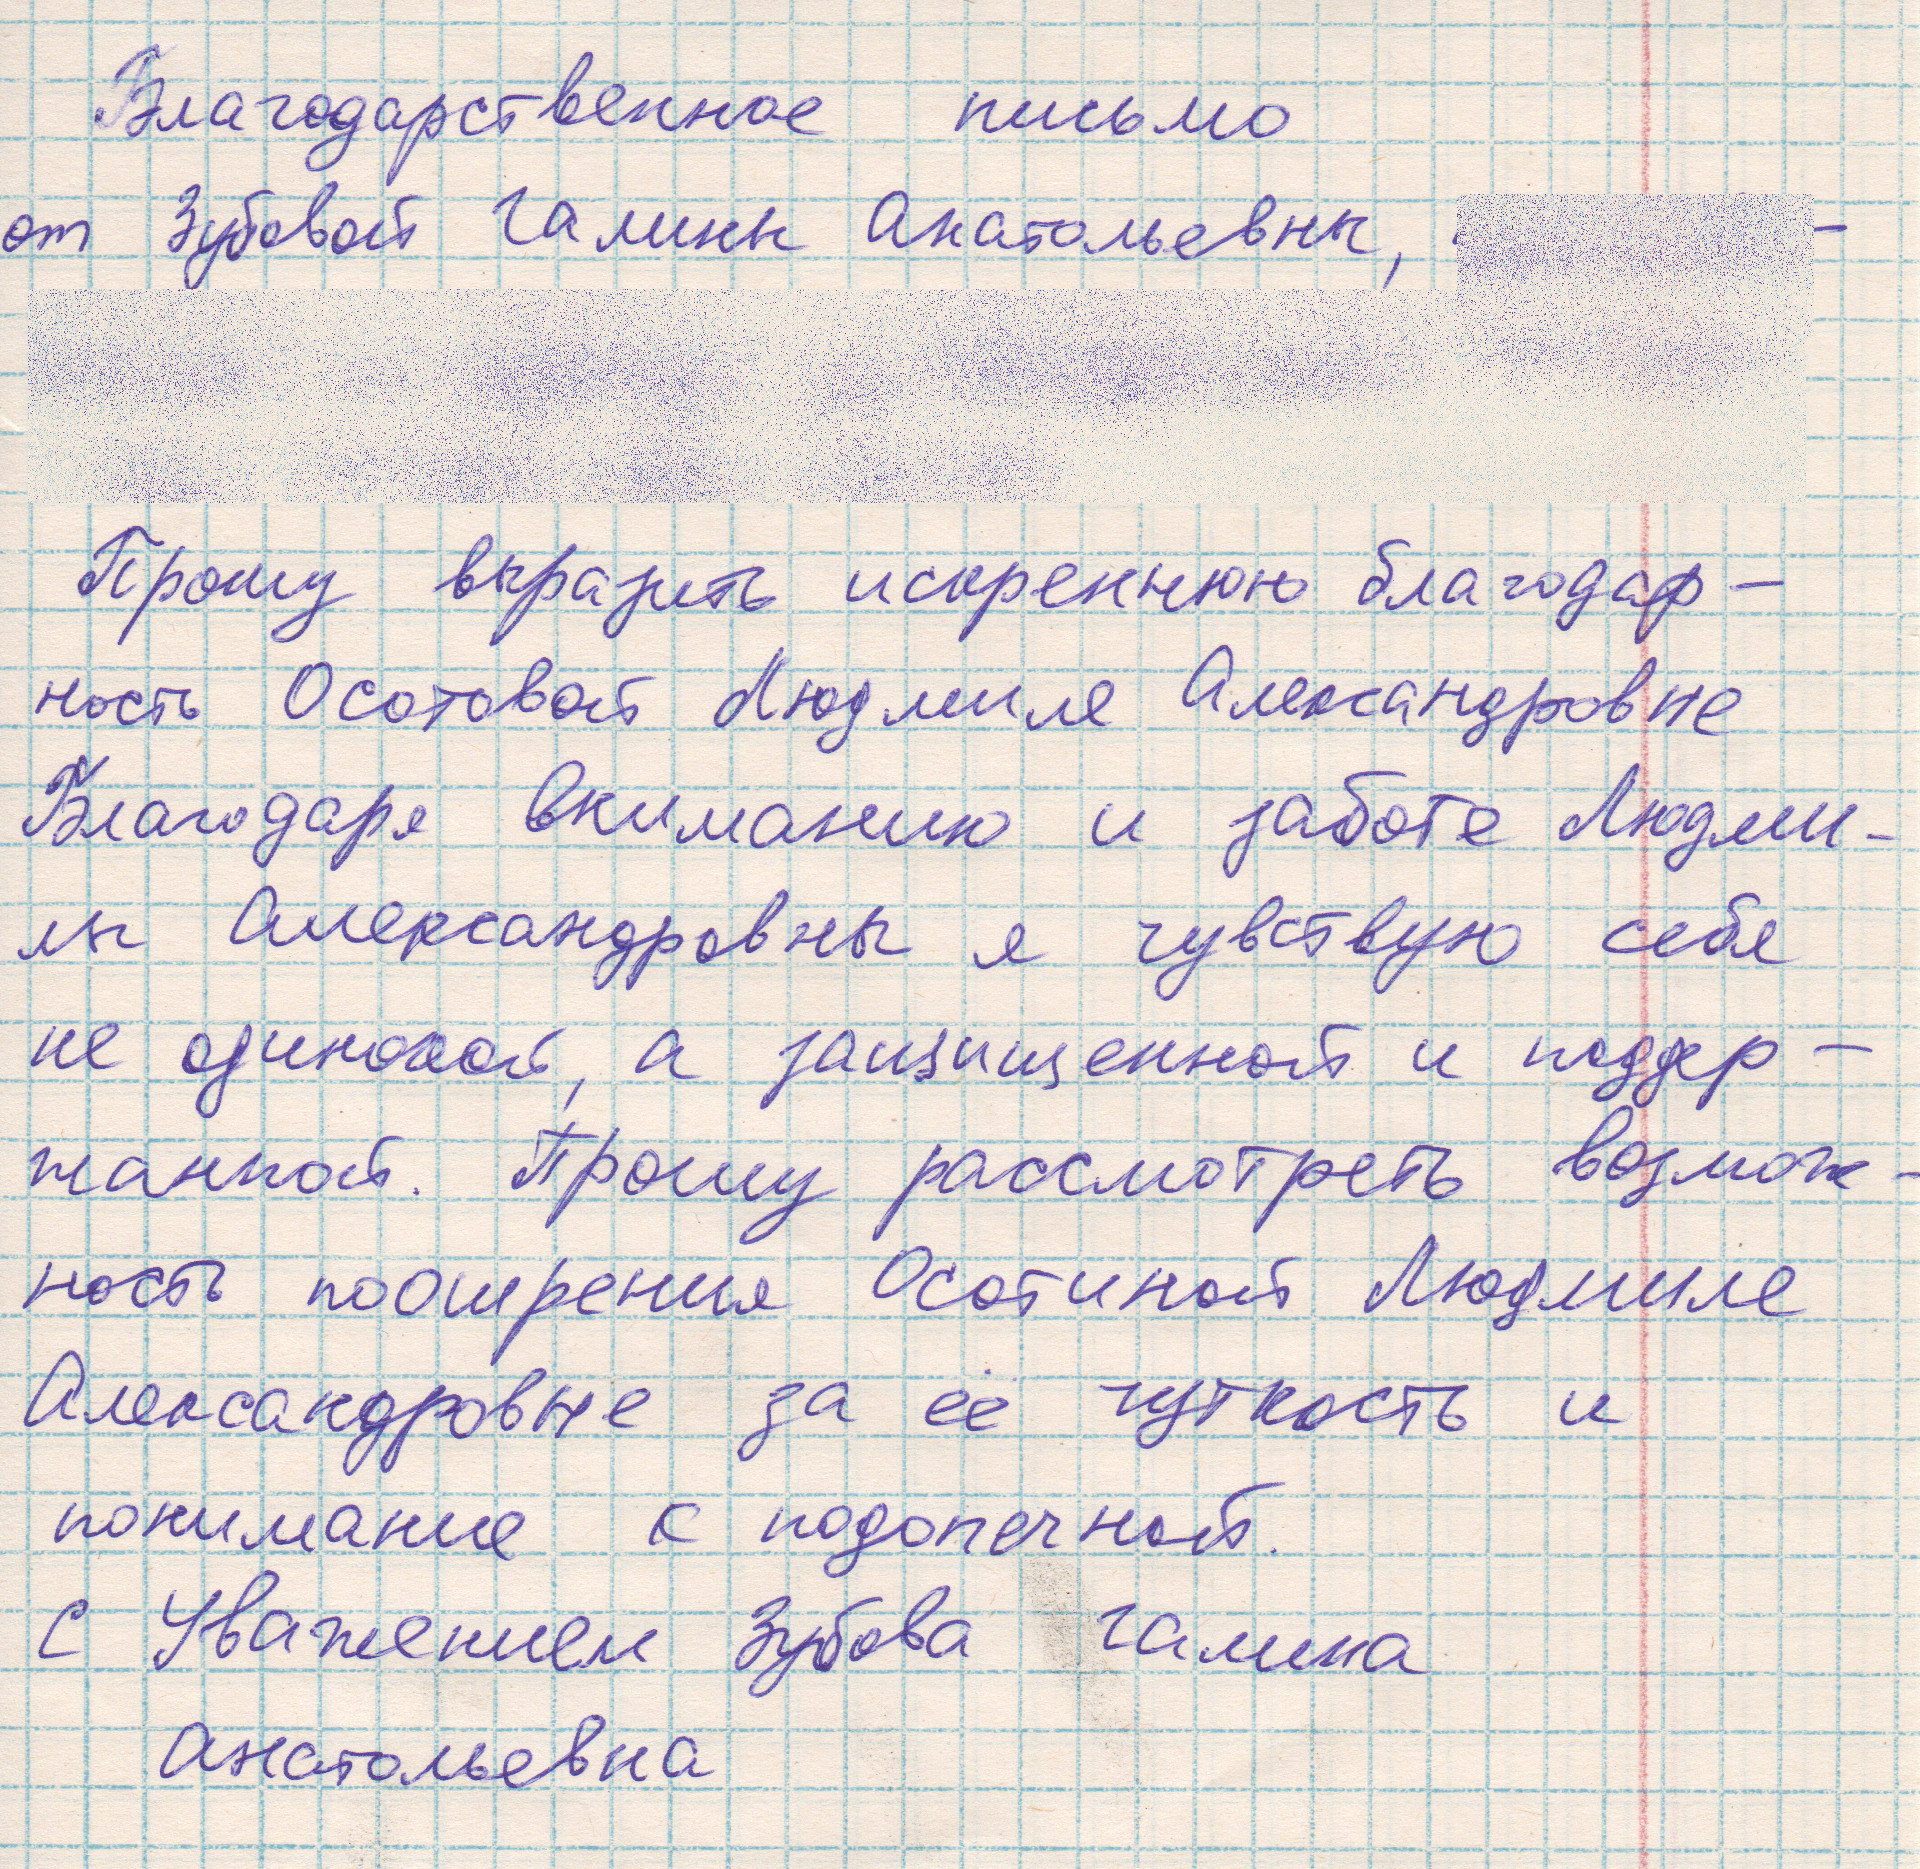 Благодарственное письмо
от Зубовой Галины Анатольевны,
Прошу выразить искреннюю благодар-
ность Осотовой Людмиле Александровне
Благодаря вниманию и заботе Людми-
лы Александровны я чувствую себя
не одинокой, а защищенной и поддер-
жанной. Прошу рассмотреть возмож-
ность поощрения Осотиной Людмиле
Александровне за её чуткость и
понимание к подопечной.
С Уважением Зубова Галина
Анатольевна